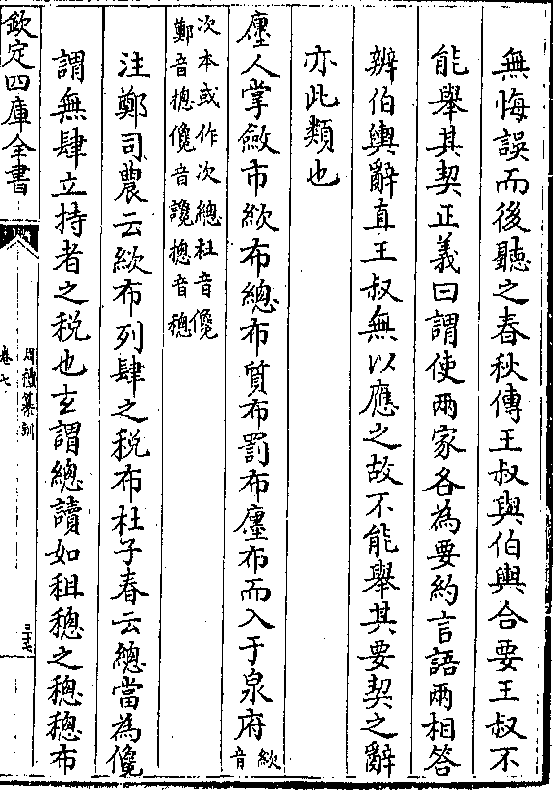 無悔誤而後聽之春秋傳王叔與伯輿合要王叔不
能舉其契正義曰謂使兩家各為要約言語兩相答
辨伯輿辭直王叔無以應之故不能舉其要契之辭
亦此類也
廛人掌斂市絘布總布質布罰布廛布而入于泉府絘音
次本或作次總杜音儳
鄭音揔儳音讒揔音穗
注鄭司農云絘布列肆之税布杜子春云總當為儳
謂無肆立持者之税也玄謂總讀如租穗之穗穗布
欽定四庫全書
周禮纂訓
卷七
三七